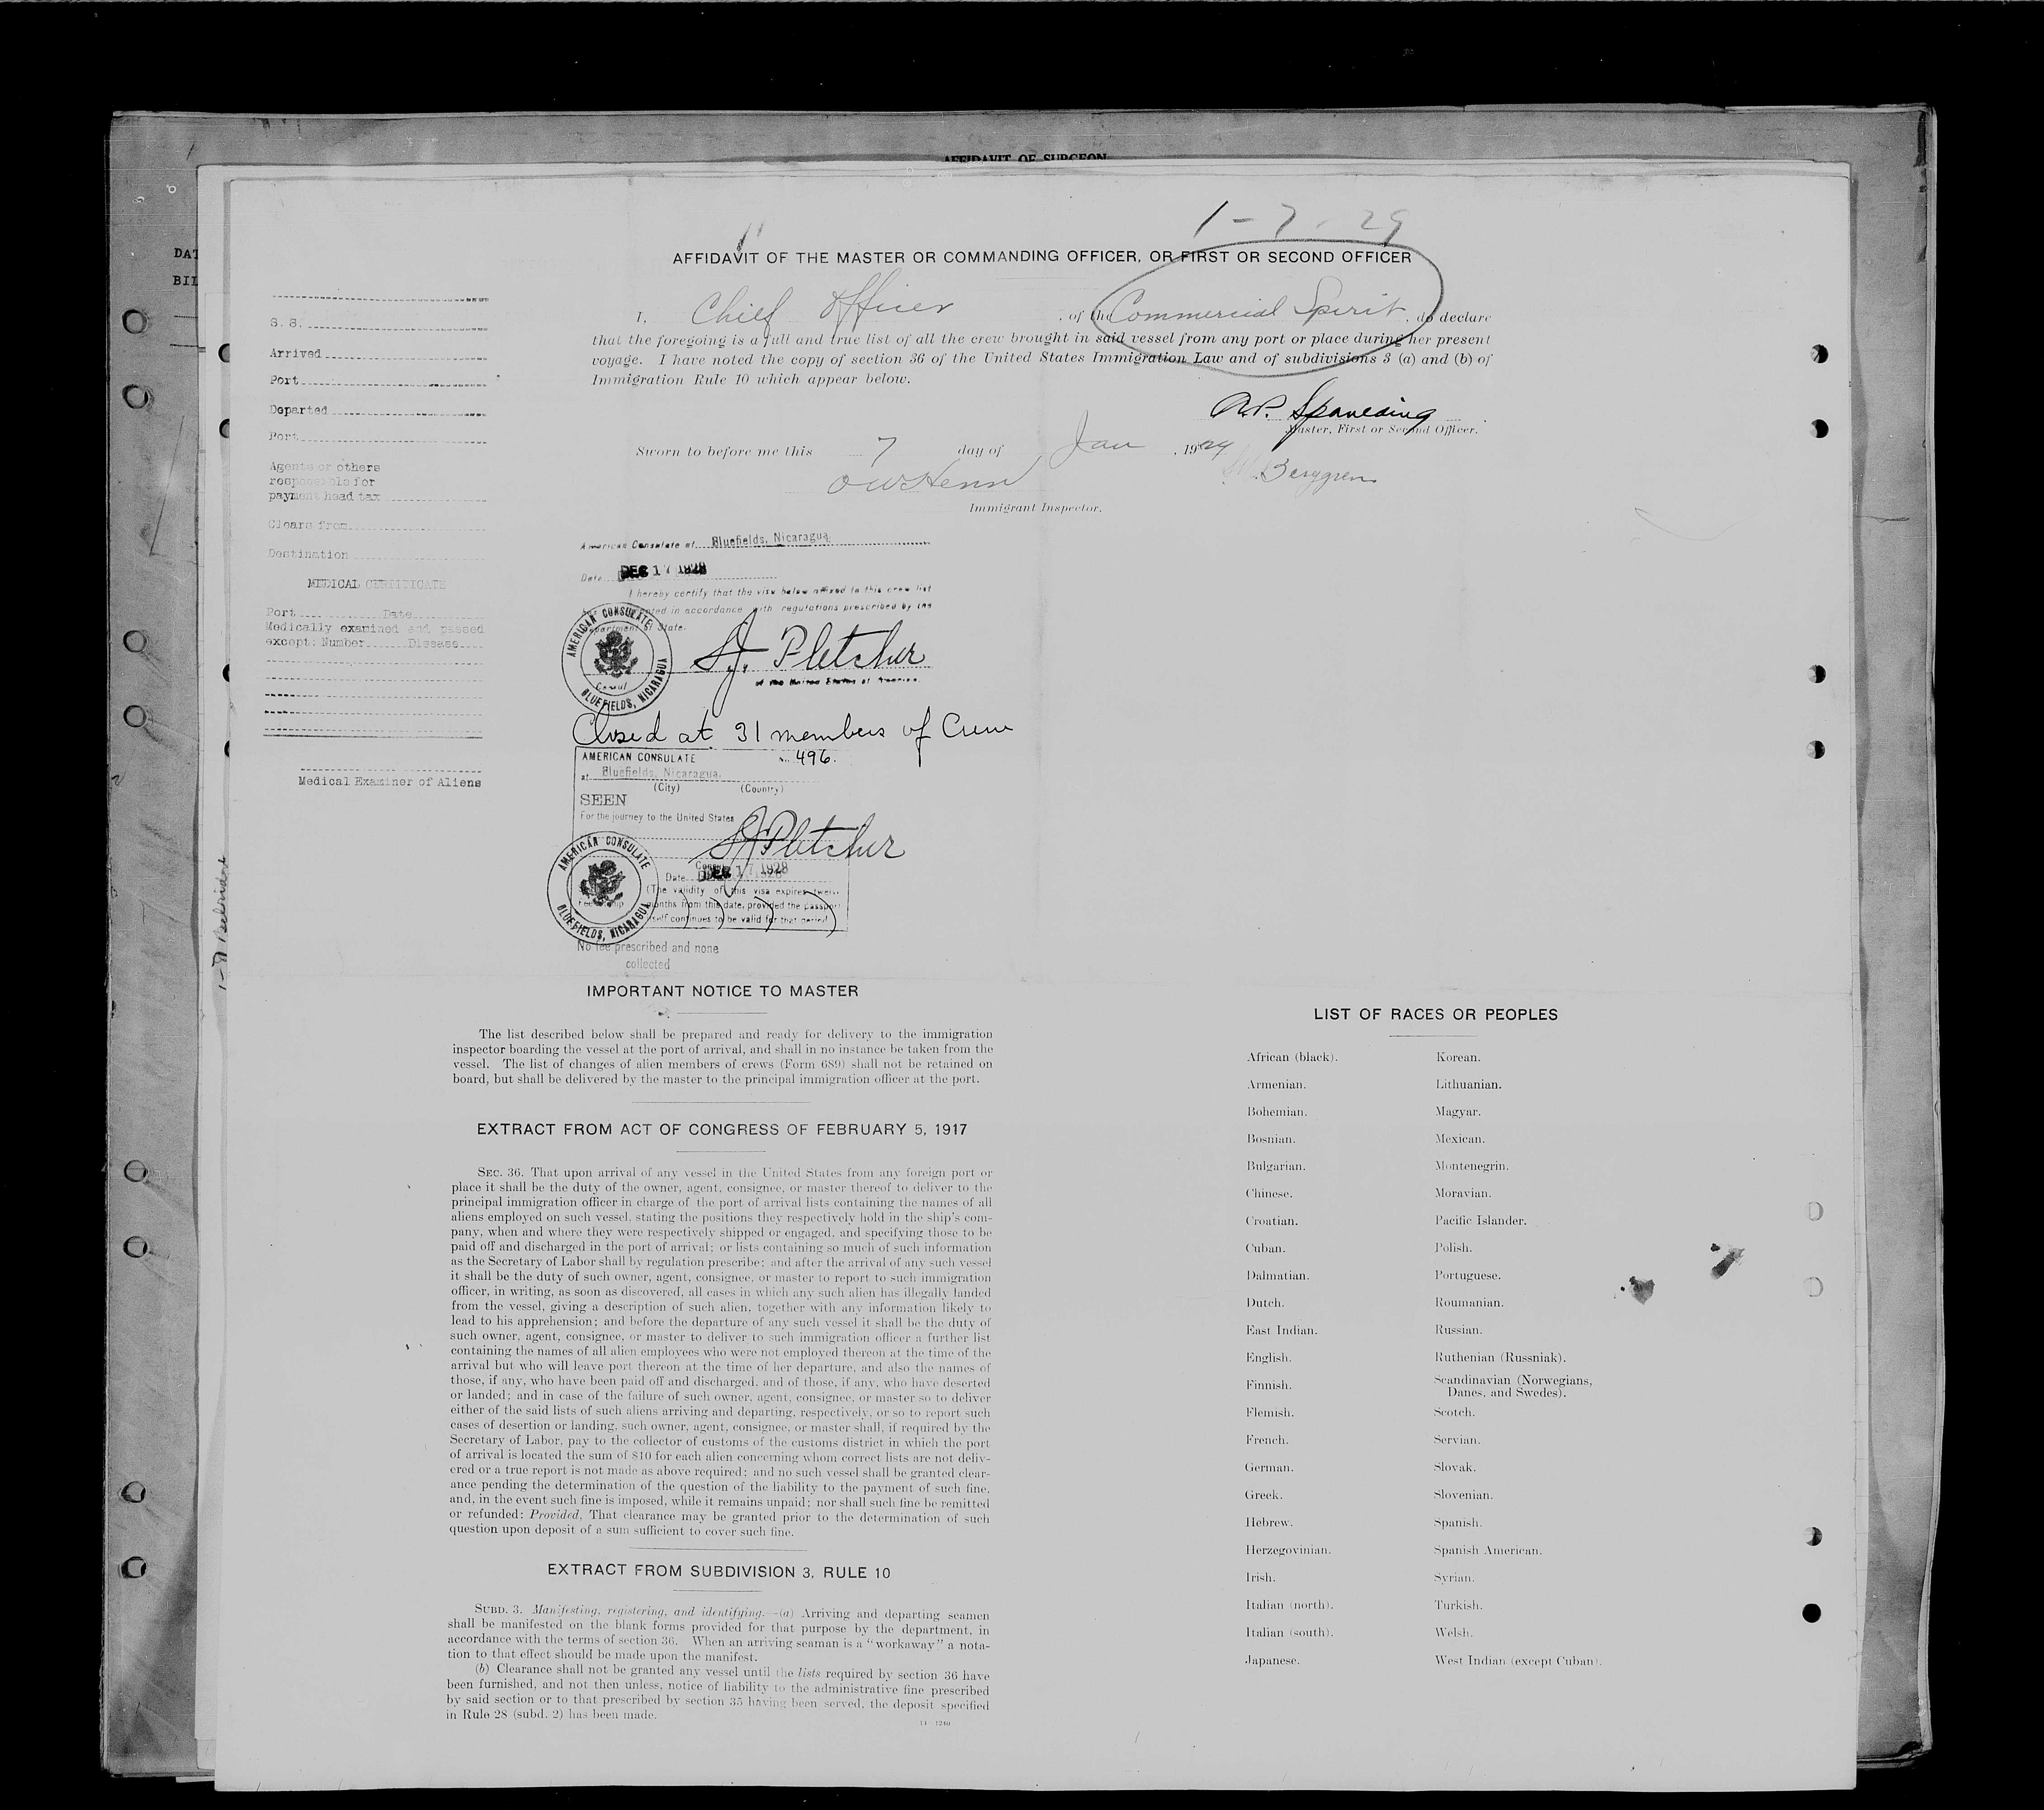 AFFIDAVIT OF SURGEON
DAT
BIL
1-7-29
AFFIDAVIT OF THE MASTER OR COMMANDING OFFICER, OR FIRST OR SECOND OFFICER
I, Chief Officer, of the Commercial Spirit, do declare
that the foregoing is a full and true list of all the crew brought in said vessel from any port or place during her present
voyage. I have noted the copy of section 36 of the United States Immigration Law and of subdivisions 3 (a) and (b) of
Immigration Rule 10 which appear below.
Master, First or Second Officer.
Sworn to before me this 7 day of Jan, 1929
Berggren
Immigrant Inspector.
S. S.
Arrived
Port
Departed
Port
Agents or others
responsible for
payment head tax
Clears from
Destination
MEDICAL CERTIFICATE
Port Date
Medically examined and passed
except: Number Disease
Medical Examiner of Aliens
American Consulate at Bluefields, Nicaragua.
Date DEC 17 1928
I hereby certify that the visa below affixed to this crew list
granted in accordance with regulations prescribed by the
Department of State.
AMERICAN CONSULATE
BLUEFIELDS, NICARAGUA
S.J. Pletcher
Consul of the United States of America.
Closed at 31 members of Crew
AMERICAN CONSULATE No. 496.
at Bluefields, Nicaragua.
(City) (Country)
SEEN
For the journey to the United States
S.J. Pletcher
Consul
AMERICAN CONSULATE
BLUEFIELDS, NICARAGUA
Date DEC 17 1928
(The validity of this visa expires twelve
months from this date, provided the passport
itself continues to be valid for that period.
No fee prescribed and none
collected
IMPORTANT NOTICE TO MASTER
The list described below shall be prepared and ready for delivery to the immigration
inspector boarding the vessel at the port of arrival, and shall in no instance be taken from the
vessel. The list of changes of alien members of crews (Form 689) shall not be retained on
board, but shall be delivered by the master to the principal immigration officer at the port.
EXTRACT FROM ACT OF CONGRESS OF FEBRUARY 5, 1917
SEC. 36. That upon arrival of any vessel in the United States from any foreign port or
place it shall be the duty of the owner, agent, consignee, or master thereof to deliver to the
principal immigration officer in charge of the port of arrival lists containing the names of all
aliens employed on such vessel, stating the positions they respectively hold in the ship's com-
pany, when and where they were respectively shipped or engaged, and specifying those to be
paid off and discharged in the port of arrival; or lists containing so much of such information
as the Secretary of Labor shall by regulation prescribe; and after the arrival of any such vessel
it shall be the duty of such owner, agent, consignee, or master to report to such immigration
officer, in writing, as soon as discovered, all cases in which any such alien has illegally landed
from the vessel, giving a description of such alien, together with any information likely to
lead to his apprehension; and before the departure of any such vessel it shall be the duty of
such owner, agent, consignee, or master to deliver to such immigration officer a further list
containing the names of all alien employees who were not employed thereon at the time of the
arrival but who will leave port thereon at the time of her departure, and also the names of
those, if any, who have been paid off and discharged, and of those, if any, who have deserted
or landed; and in case of the failure of such owner, agent, consignee, or master so to deliver
either of the said lists of such aliens arriving and departing, respectively, or so to report such
cases of desertion or landing, such owner, agent, consignee, or master shall, if required by the
Secretary of Labor, pay to the collector of customs of the customs district in which the port
of arrival is located the sum of $10 for each alien concerning whom correct lists are not deliv-
ered or a true report is not made as above required; and no such vessel shall be granted clear-
ance pending the determination of the question of the liability to the payment of such fine,
and, in the event such fine is imposed, while it remains unpaid; nor shall such fine be remitted
or refunded: Provided, That clearance may be granted prior to the determination of such
question upon deposit of a sum sufficient to cover such fine.
EXTRACT FROM SUBDIVISION 3, RULE 10
SUBD. 3. Manifesting, registering, and identifying.—(a) Arriving and departing seamen
shall be manifested on the blank forms provided for that purpose by the department, in
accordance with the terms of section 36. When an arriving seaman is a "workaway" a nota-
tion to that effect should be made upon the manifest.
(b) Clearance shall not be granted any vessel until the lists required by section 36 have
been furnished, and not then unless, notice of liability to the administrative fine prescribed
by said section or to that prescribed by section 35 having been served, the deposit specified
in Rule 28 (subd. 2) has been made.
14—1240
LIST OF RACES OR PEOPLES
African (black). Korean.
Armenian. Lithuanian.
Bohemian. Magyar.
Bosnian. Mexican.
Bulgarian. Montenegrin.
Chinese. Moravian.
Croatian. Pacific Islander.
Cuban. Polish.
Dalmatian. Portuguese.
Dutch. Roumanian.
East Indian. Russian.
English. Ruthenian (Russniak).
Finnish. Scandinavian (Norwegians,
Danes, and Swedes).
Flemish. Scotch.
French. Servian.
German. Slovak.
Greek. Slovenian.
Hebrew. Spanish.
Herzegovinian. Spanish American.
Irish. Syrian.
Italian (north). Turkish.
Italian (south). Welsh.
Japanese. West Indian (except Cuban).